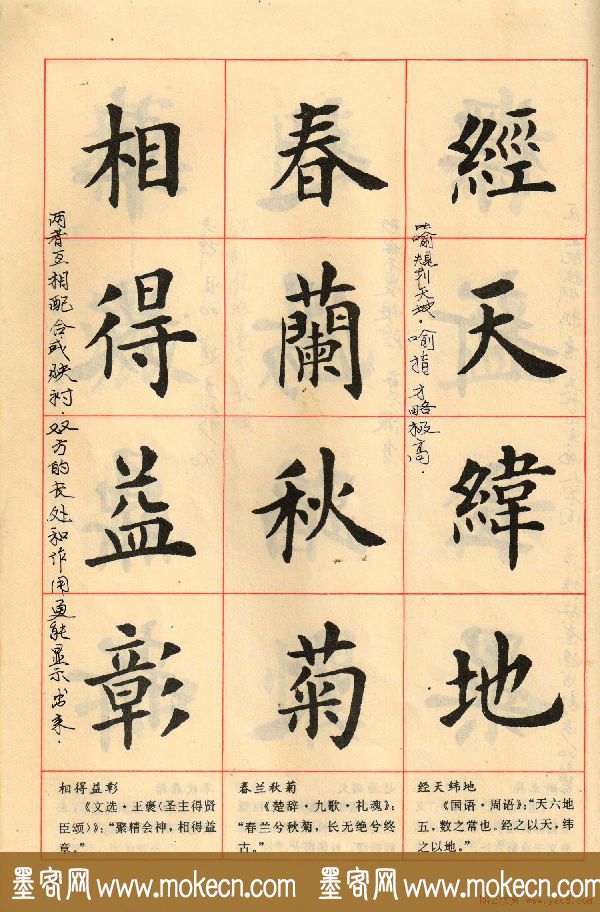 經天緯地
喻规划天地。喻指才略极高。
春蘭秋菊
相得益彰
两者互相配合或映衬。双方的长处和作用更能显示出来。
经天纬地
《国语·周语》：“天六地
五，数之常也。经之以天，纬
之以地。”
春兰秋菊
《楚辞·九歌·礼魂》：
“春兰兮秋菊，长无绝兮终
古。”
相得益彰
《文选·王褒〈圣主得贤
臣颂〉》：“聚精会神，相得益
章。”
墨客网 www.mokecn.com 墨客网 www.mokecn.com